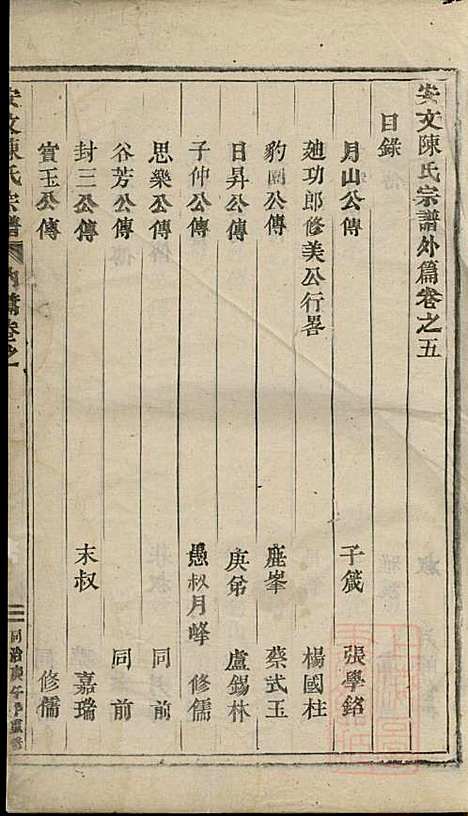 安文陳氏宗譜外篇卷之五
目錄
月山公傳 千箴 張學銘
廸功郎修美公行畧 楊國柱
豹園公傳 鹿峯 蔡式玉
日昇公傳 庚弟 盧錫林
子仲公傳 愚叔月峰 修儒
思樂公傳 同前
谷芳公傳 同前
封三公傳 末叔 嘉瑞
實玉公傳 修儒
安文陳氏宗譜
同治庚午